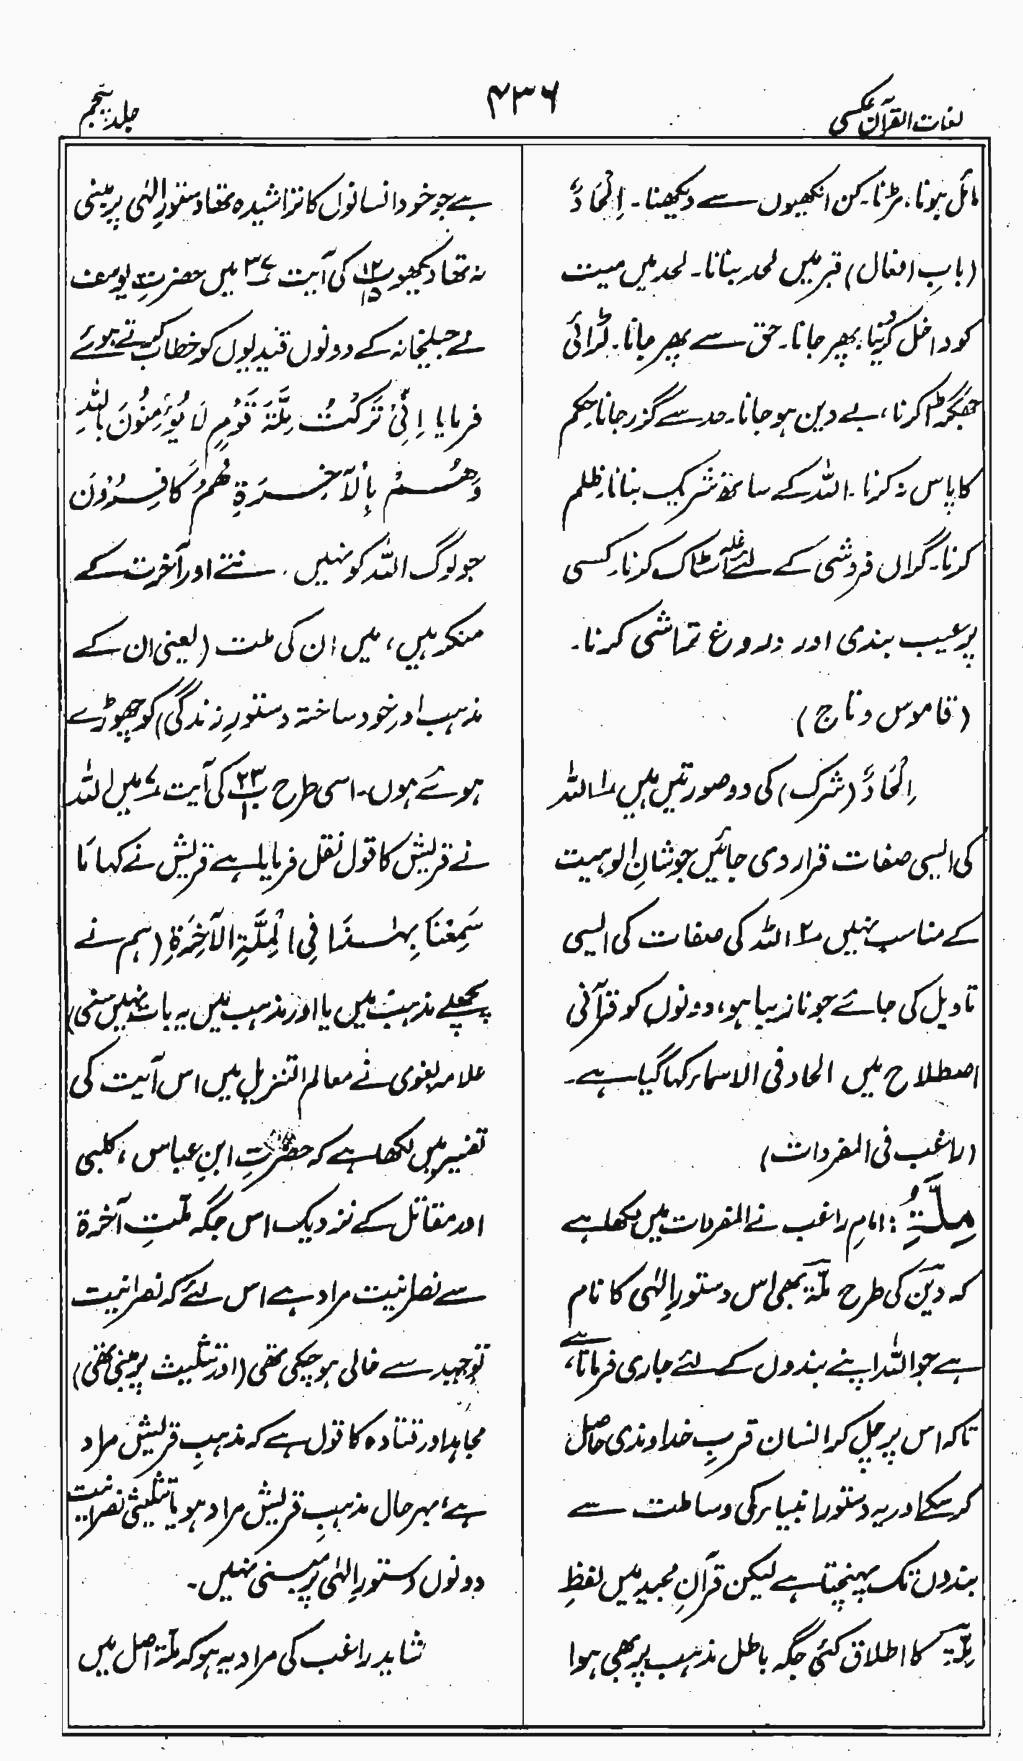 لغات القرآن عکسی
۴۳۶
جلد پنجم
مائل ہونا، مڑنا۔ کن انکھیوں سے دیکھنا۔ اِلْحَادٌ
(بابِ افعال) قبر میں لحد بنانا۔ لحد میں میت
کو داخل کرنا، پھر جانا۔ حق سے پھر جانا۔ لڑائی
جھگڑا کرنا، بے دین ہو جانا۔ حد سے گزر جانا، حکم
کا پاس نہ کرنا۔ اللہ کے ساتھ شریک بنانا، ظلم
کرنا۔ گراں فروشی کے لئے غلہ اسٹاک کرنا۔ کسی
پر عیب بندی اور دروغ تماشی کرنا۔
(قاموس و تاج)
اِلْحَادٌ (شرک) کی دو صورتیں ہیں ۱؎ اللہ
کی ایسی صفات قرار دی جائیں جو شانِ الوہیت
کے مناسب نہیں ۲؎ اللہ کی صفات کی ایسی
تاویل کی جائے جو نازیبا ہو، دونوں کو قرآنی
اصطلاح میں الحاد فی الاسماء کہا گیا ہے۔
(راغب فی المفردات)
مِلَّۃِ: امام راغب نے المفردات میں لکھا ہے
کہ دین کی طرح ملۃ بھی اس دستورِ الٰہی کا نام
ہے جو اللہ اپنے بندوں کے لئے جاری فرماتا ہے،
تاکہ اس پر چل کر انسان قربِ خداوندی حاصل
کر سکے اور یہ دستور انبیاء کی وساطت سے
بندوں تک پہنچتا ہے لیکن قرآنِ مجید میں لفظِ
مِلّۃ کا اطلاق کئی جگہ باطل مذہب پر بھی ہوا
ہے جو خود انسانوں کا تراشیدہ تھا دستورِ الٰہی پر مبنی
نہ تھا دیکھو پ ۱۲/۱۵ کی آیت ۳۷ میں حضرتِ یوسف
نے جیلخانہ کے دونوں قیدیوں کو خطاب کرتے ہوئے
فرمایا اِنِّیْ تَرَکْتُ مِلَّۃَ قَوْمٍ لَا یُؤْمِنُوْنَ بِاللہِ
وَھُمْ بِالْآخِرَۃِ ھُمْ کَافِرُوْنَ
جو لوگ اللہ کو نہیں مانتے اور آخرت کے
منکر ہیں، میں ان کی ملت (یعنی ان کے
مذہب اور خود ساختہ دستورِ زندگی) کو چھوڑے
ہوئے ہوں۔ اسی طرح پ ۲۳/۱۰ کی آیت ۷ میں اللہ
نے قریش کا قول نقل فرمایا ہے قریش نے کہا مَا
سَمِعْنَا بِھٰذَا فِی الْمِلَّۃِ الْآخِرَۃِ (ہم نے
پچھلے مذہب میں یا اور مذہب میں یہ بات نہیں سنی)
علامہ بغوی نے معالم التنزیل میں اس آیت کی
تفسیر میں لکھا ہے کہ حضرتِ ابنِ عباس، کلبی
اور مقاتل کے نزدیک اس جگہ ملّتِ آخرۃ
سے نصرانیت مراد ہے اس لئے کہ نصرانیت
توحید سے خالی ہو چکی تھی (اور تثلیث پر مبنی تھی)
مجاہد اور قتادہ کا قول ہے کہ مذہبِ قریش مراد
ہے، بہر حال مذہبِ قریش مراد ہو یا تثلیثی نصرانیت
دونوں دستورِ الٰہی پر مبنی نہیں۔
شاید راغب کی مراد یہ ہو کہ ملّۃ اصل میں